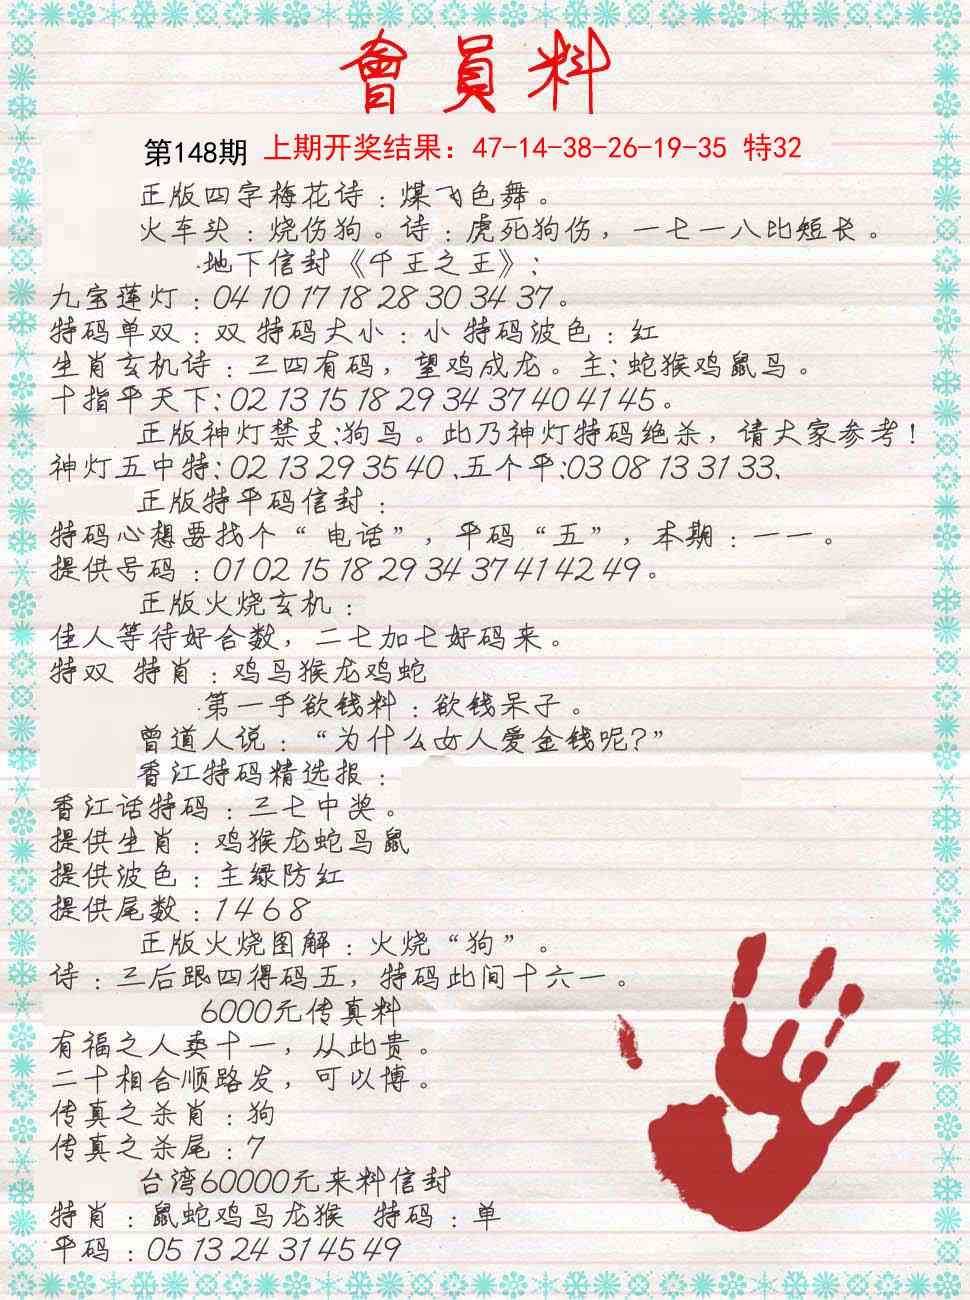 會員料
第148期 上期开奖结果：47-14-38-26-19-35 特32
正版四字梅花诗：煤飞色舞。
火车头：烧伤狗。诗：虎死狗伤，一七一八比短长。
地下信封《千王之王》：
九宝莲灯：04 10 17 18 28 30 34 37。
特码单双：双 特码大小：小 特码波色：红
生肖玄机诗：三四有码，望鸡成龙。主：蛇猴鸡鼠马。
十指平天下：02 13 15 18 29 34 37 40 41 45。
正版神灯禁支：狗马。此乃神灯特码绝杀，请大家参考！
神灯五中特：02 13 29 35 40、五个平：03 08 13 31 33、
正版特平码信封：
特码心想要找个“电话”，平码“五”，本期：一一。
提供号码：01 02 15 18 29 34 37 41 42 49。
正版火烧玄机：
佳人等待好合数，二七加七好码来。
特双 特肖：鸡马猴龙鸡蛇
第一手欲钱料：欲钱呆子。
曾道人说：“为什么女人爱金钱呢？”
香江特码精选报：
香江话特码：三七中奖。
提供生肖：鸡猴龙蛇马鼠
提供波色：主绿防红
提供尾数：1 4 6 8
正版火烧图解：火烧“狗”。
诗：三后跟四得码五，特码此间十六一。
6000元传真料
有福之人卖十一，从此贵。
二十相合顺路发，可以博。
传真之杀肖：狗
传真之杀尾：7
台湾60000元来料信封
特肖：鼠蛇鸡马龙猴 特码：单
平码：05 13 24 31 45 49